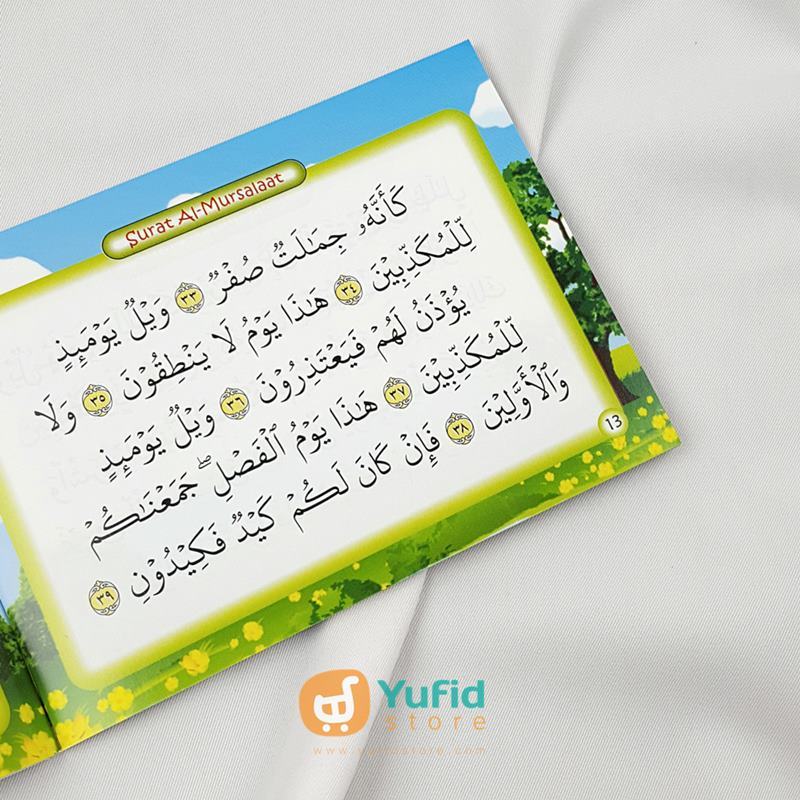 Surat Al-Mursalaat
كَأَنَّهُۥ جِمَٰلَتٌ صُفْرٌ ٣٣ وَيْلٌ يَوْمَئِذٍ
لِّلْمُكَذِّبِيْنَ ٣٤ هَٰذَا يَوْمُ لَا يَنْطِقُوْنَ ٣٥ وَلَا
يُؤْذَنُ لَهُمْ فَيَعْتَذِرُوْنَ ٣٦ وَيْلٌ يَوْمَئِذٍ
لِّلْمُكَذِّبِيْنَ ٣٧ هَٰذَا يَوْمُ ٱلْفَصْلِ ۖ جَمَعْنَٰكُمْ
وَٱلْأَوَّلِيْنَ ٣٨ فَإِنْ كَانَ لَكُمْ كَيْدٌ فَكِيْدُوْنِ ٣٩
13
Yufid
store
www.yufidstore.com